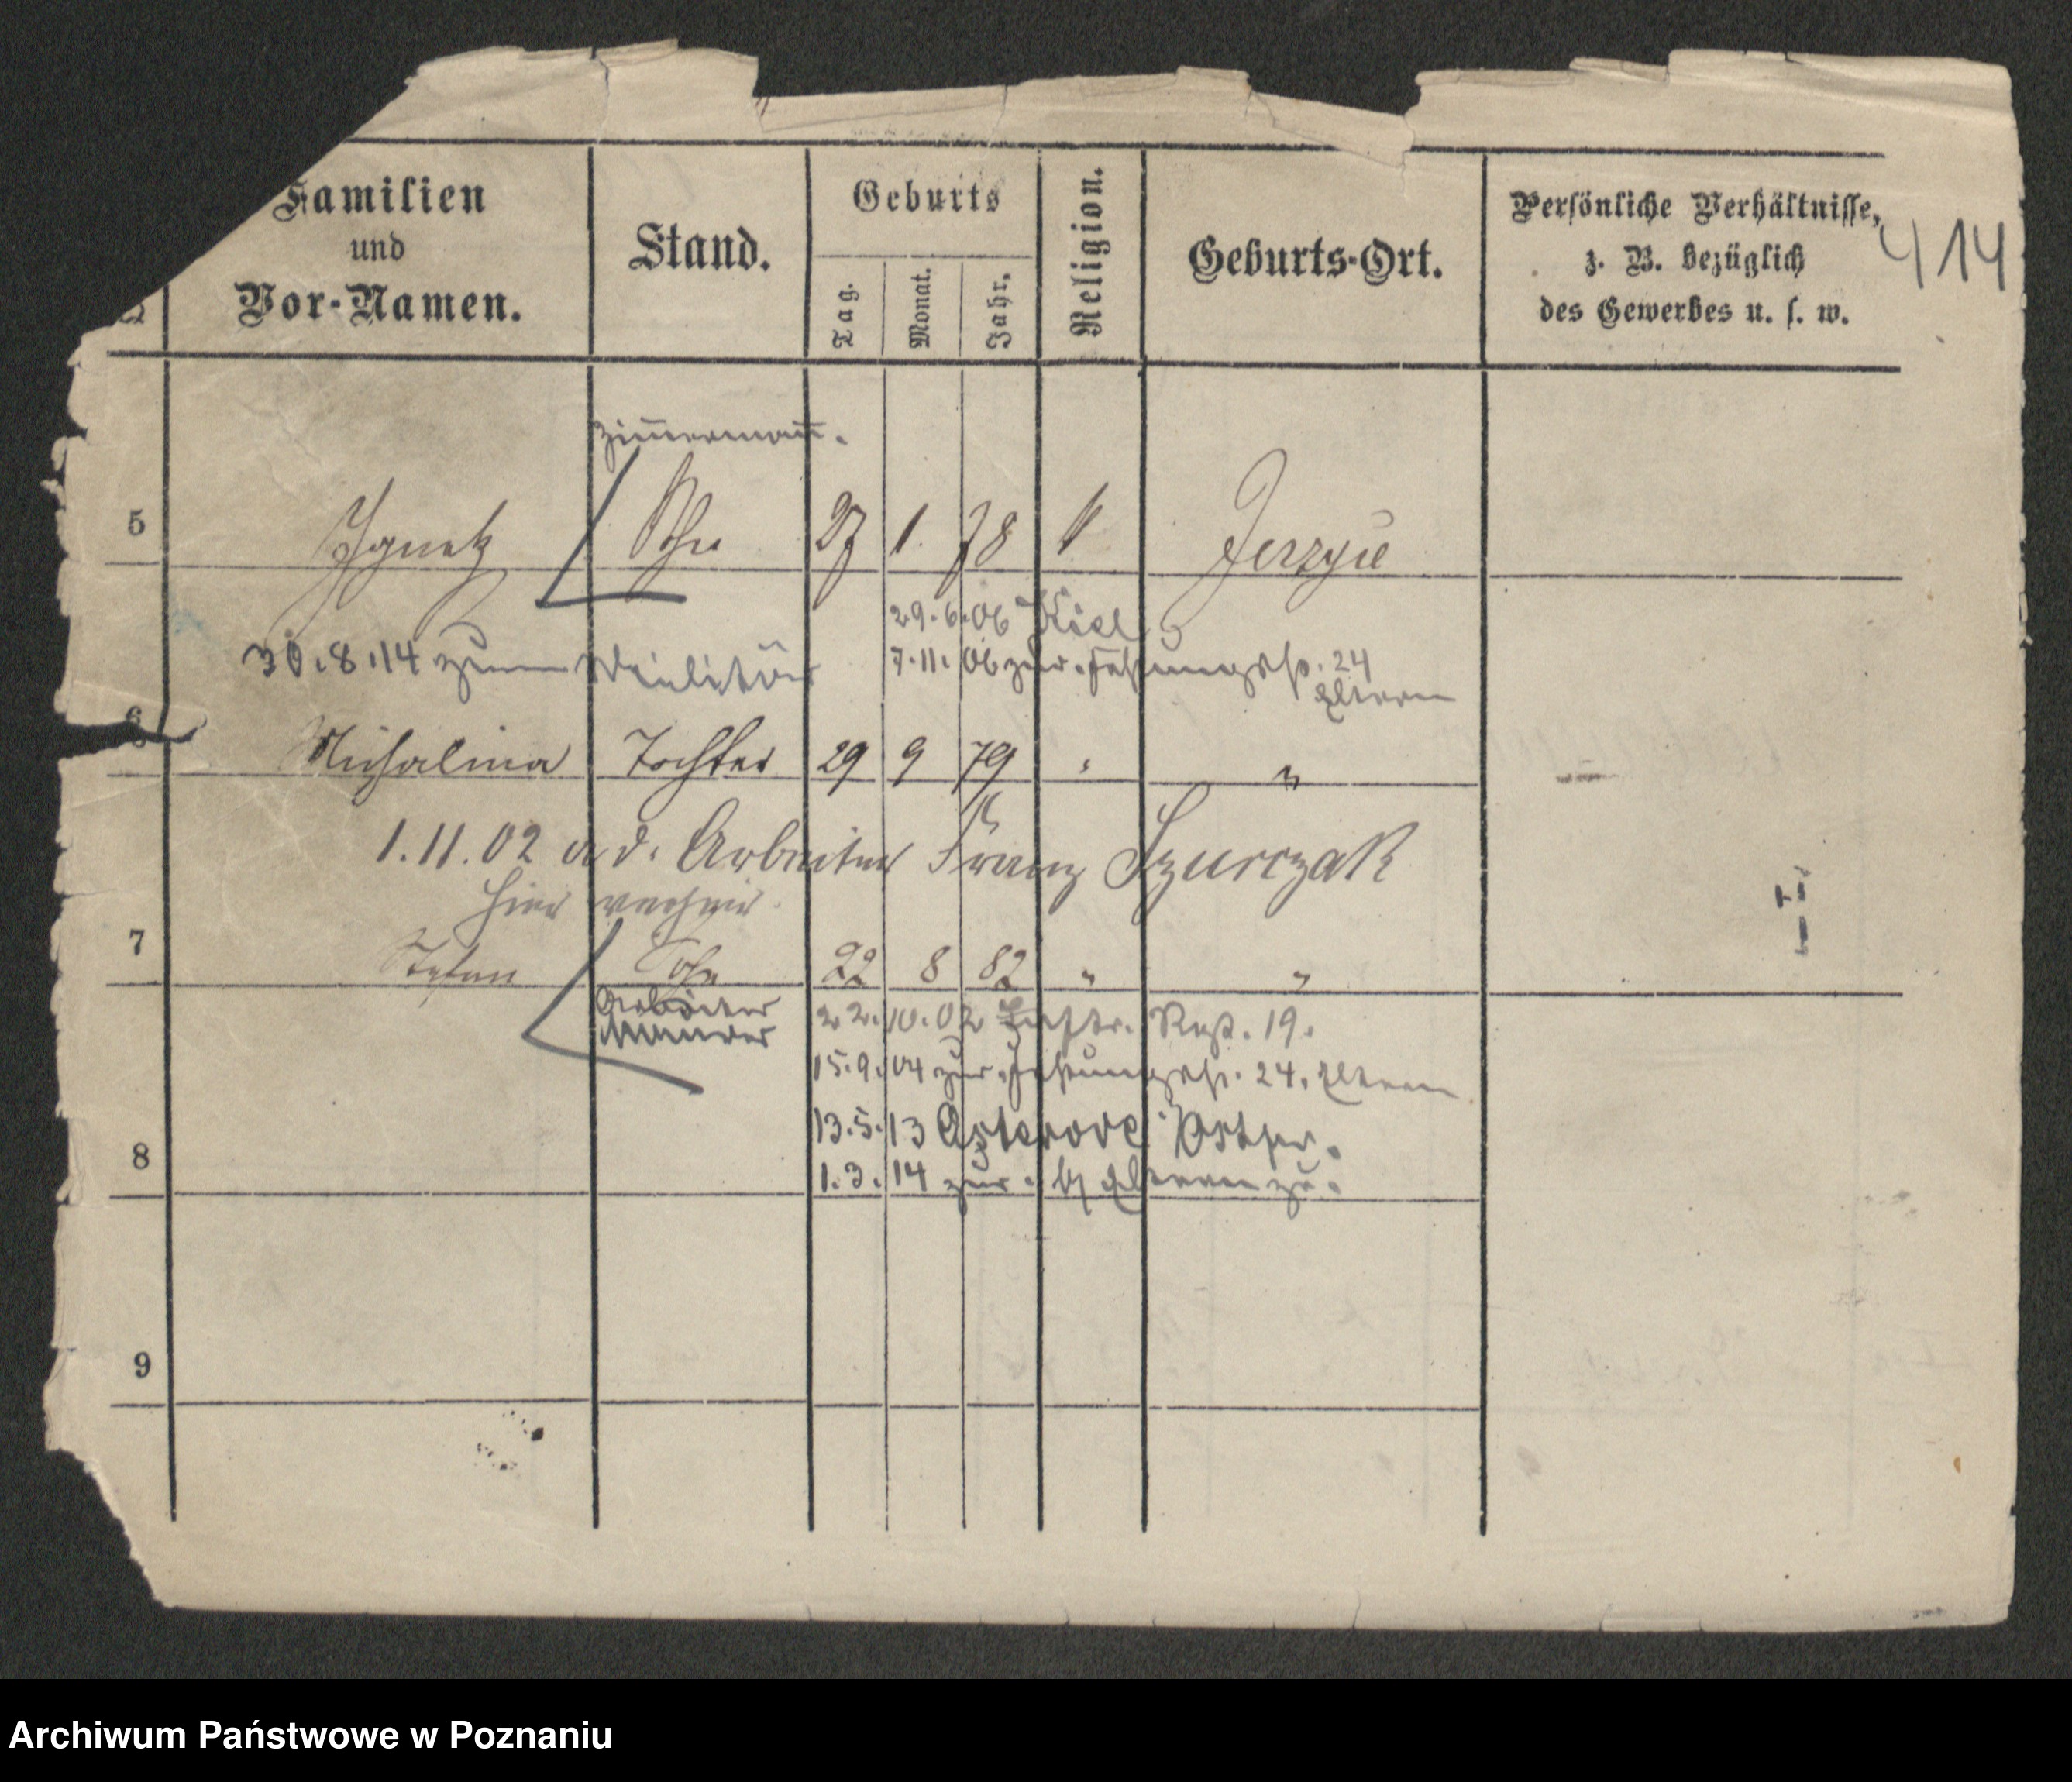 Familien
und
Vor-Namen.
Stand.
Geburts
Tag.
Monat.
Jahr.
Religion.
Geburts-Ort.
Persönliche Verhältnisse,
z. B. bezüglich
des Gewerbes u. s. w.
414
Zimmermann.
5 Ignatz Sohn 27 1. 78 k Jerzyce
29.6.06 Kiel
30.8.14 zum Militär 7.11.06 zur. Festungsstr. 24
Eltern
6 Michalina Tochter 29 9 79 " "
1.11.02 a. d. Arbeiter Franz Szurczak
hier verheir.
7 Stefan Sohn 22 8 82 " "
Arbeiter 22.10.02 Regt. 19.
Maurer
15.9.04 zur. Festungsstr. 24. Eltern
13.5.13 Osterode Ostpr.
8 1.3.14 zur. Eltern
9
Archiwum Państwowe w Poznaniu